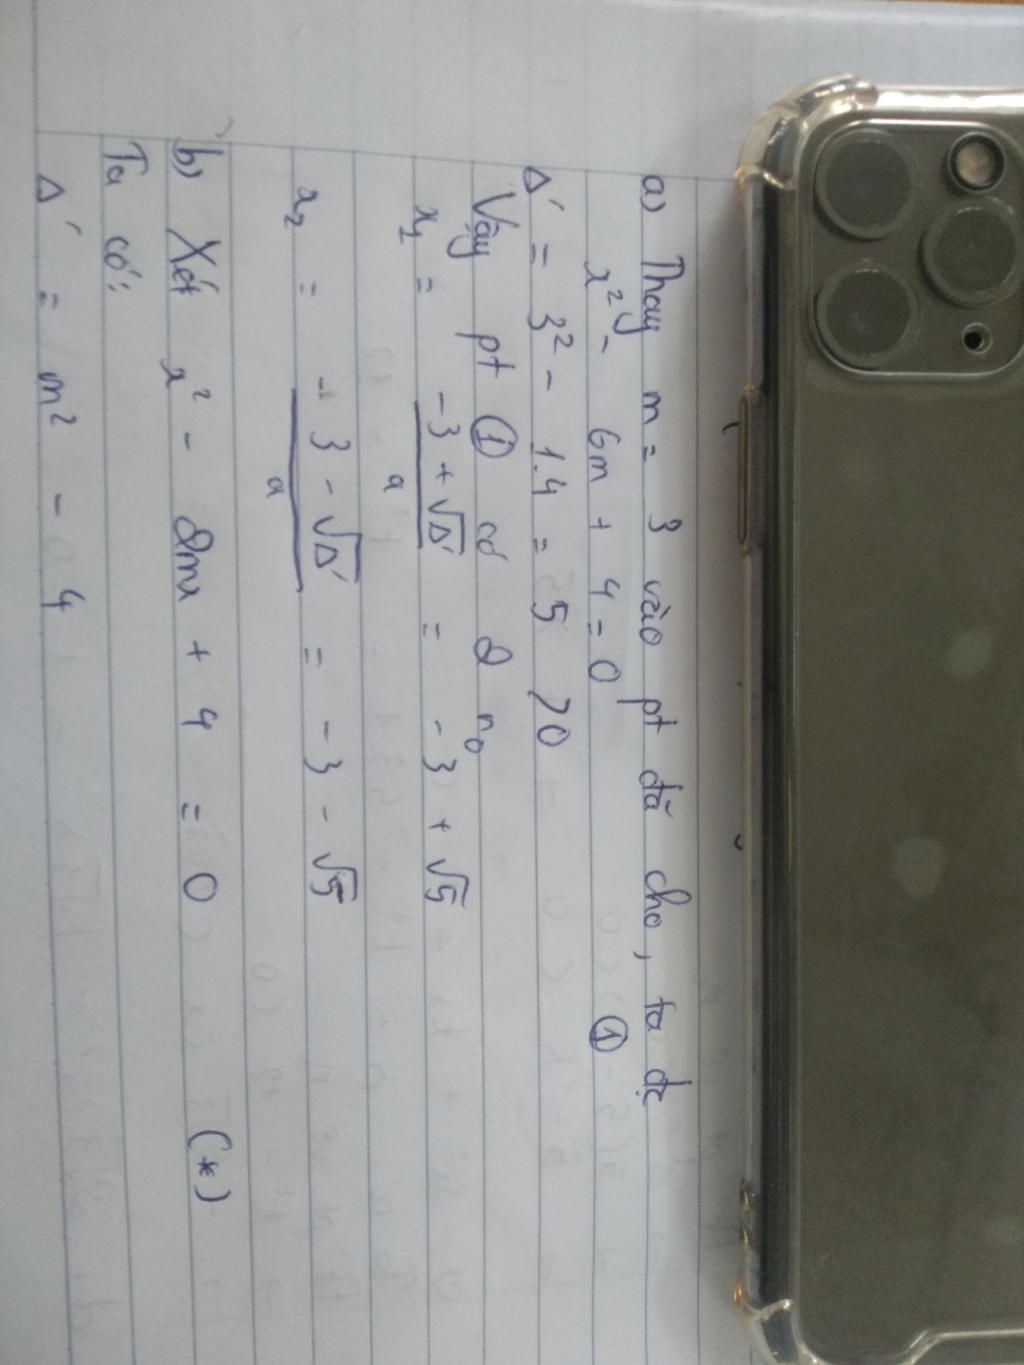 a) Thay m = 3 vào pt đã cho, ta đc
x² - 6m + 4 = 0 ①
Δ' = 3² - 1.4 = 5 > 0
Vậy pt ① có 2 n₀
x₁ = (-3 + √Δ')/a = -3 + √5
x₂ = (-3 - √Δ')/a = -3 - √5
b) Xét x² - 2mx + 4 = 0 (*)
Ta có:
Δ' = m² - 4